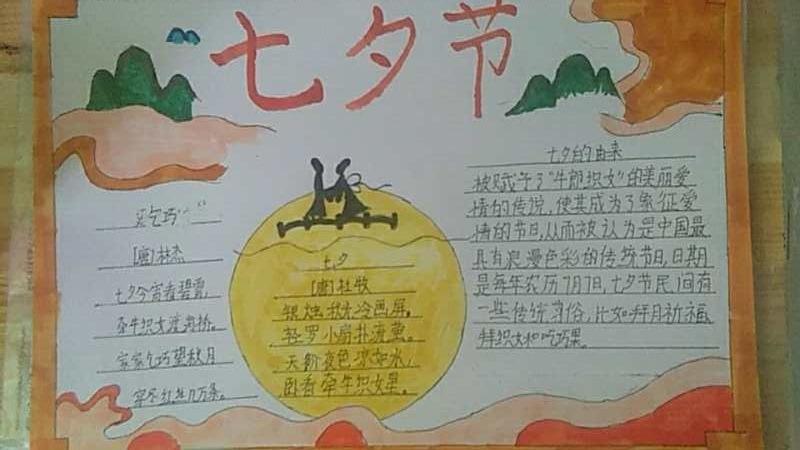 七夕节
乞巧
[唐]林杰
七夕今宵看碧霄,
牵牛织女渡河桥。
家家乞巧望秋月
穿尽红丝几万条。
七夕
[唐]杜牧
银烛秋光冷画屏。
轻罗小扇扑流萤。
天阶夜色凉如水,
卧看牵牛织女星。
七夕的由来
被赋予了“牛郎织女”的美丽爱
情的传说,使其成为了象征爱
情的节日,从而被认为是中国最
具有浪漫色彩的传统节日,日期
是每年农历7月7日,七夕节民间有
一些传统习俗,比如拜月祈福
拜织女和吃巧果。